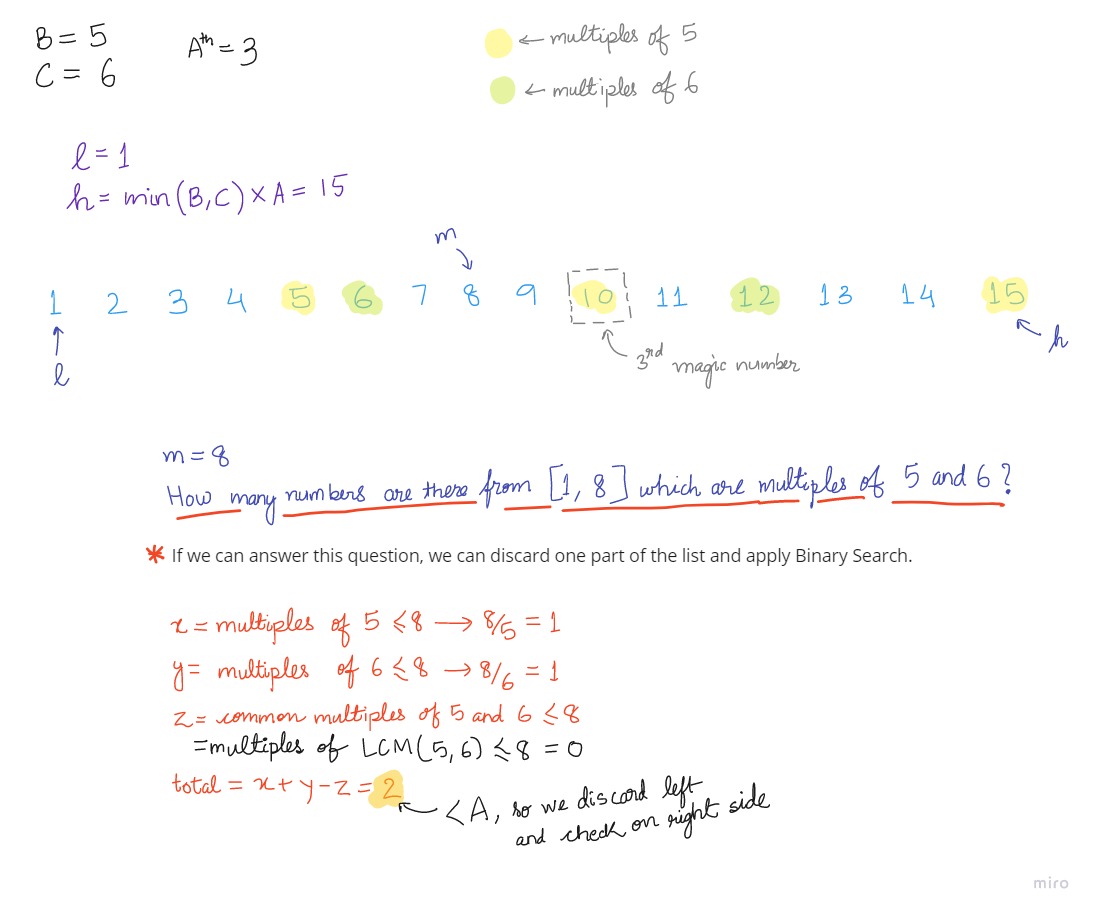 B = 5
C = 6
Aᵗʰ = 3
← multiples of 5
← multiples of 6
l = 1
h = min(B,C) × A = 15
m
1 2 3 4 5 6 7 8 9 10 11 12 13 14 15
l
3ʳᵈ magic number
h
m = 8
How many numbers are there from [1, 8] which are multiples of 5 and 6 ?
* If we can answer this question, we can discard one part of the list and apply Binary Search.
x = multiples of 5 ≤ 8 → 8/5 = 1
y = multiples of 6 ≤ 8 → 8/6 = 1
z = common multiples of 5 and 6 ≤ 8
= multiples of LCM(5,6) ≤ 8 = 0
total = x + y - z = 2
< A, so we discard left
and check on right side
miro